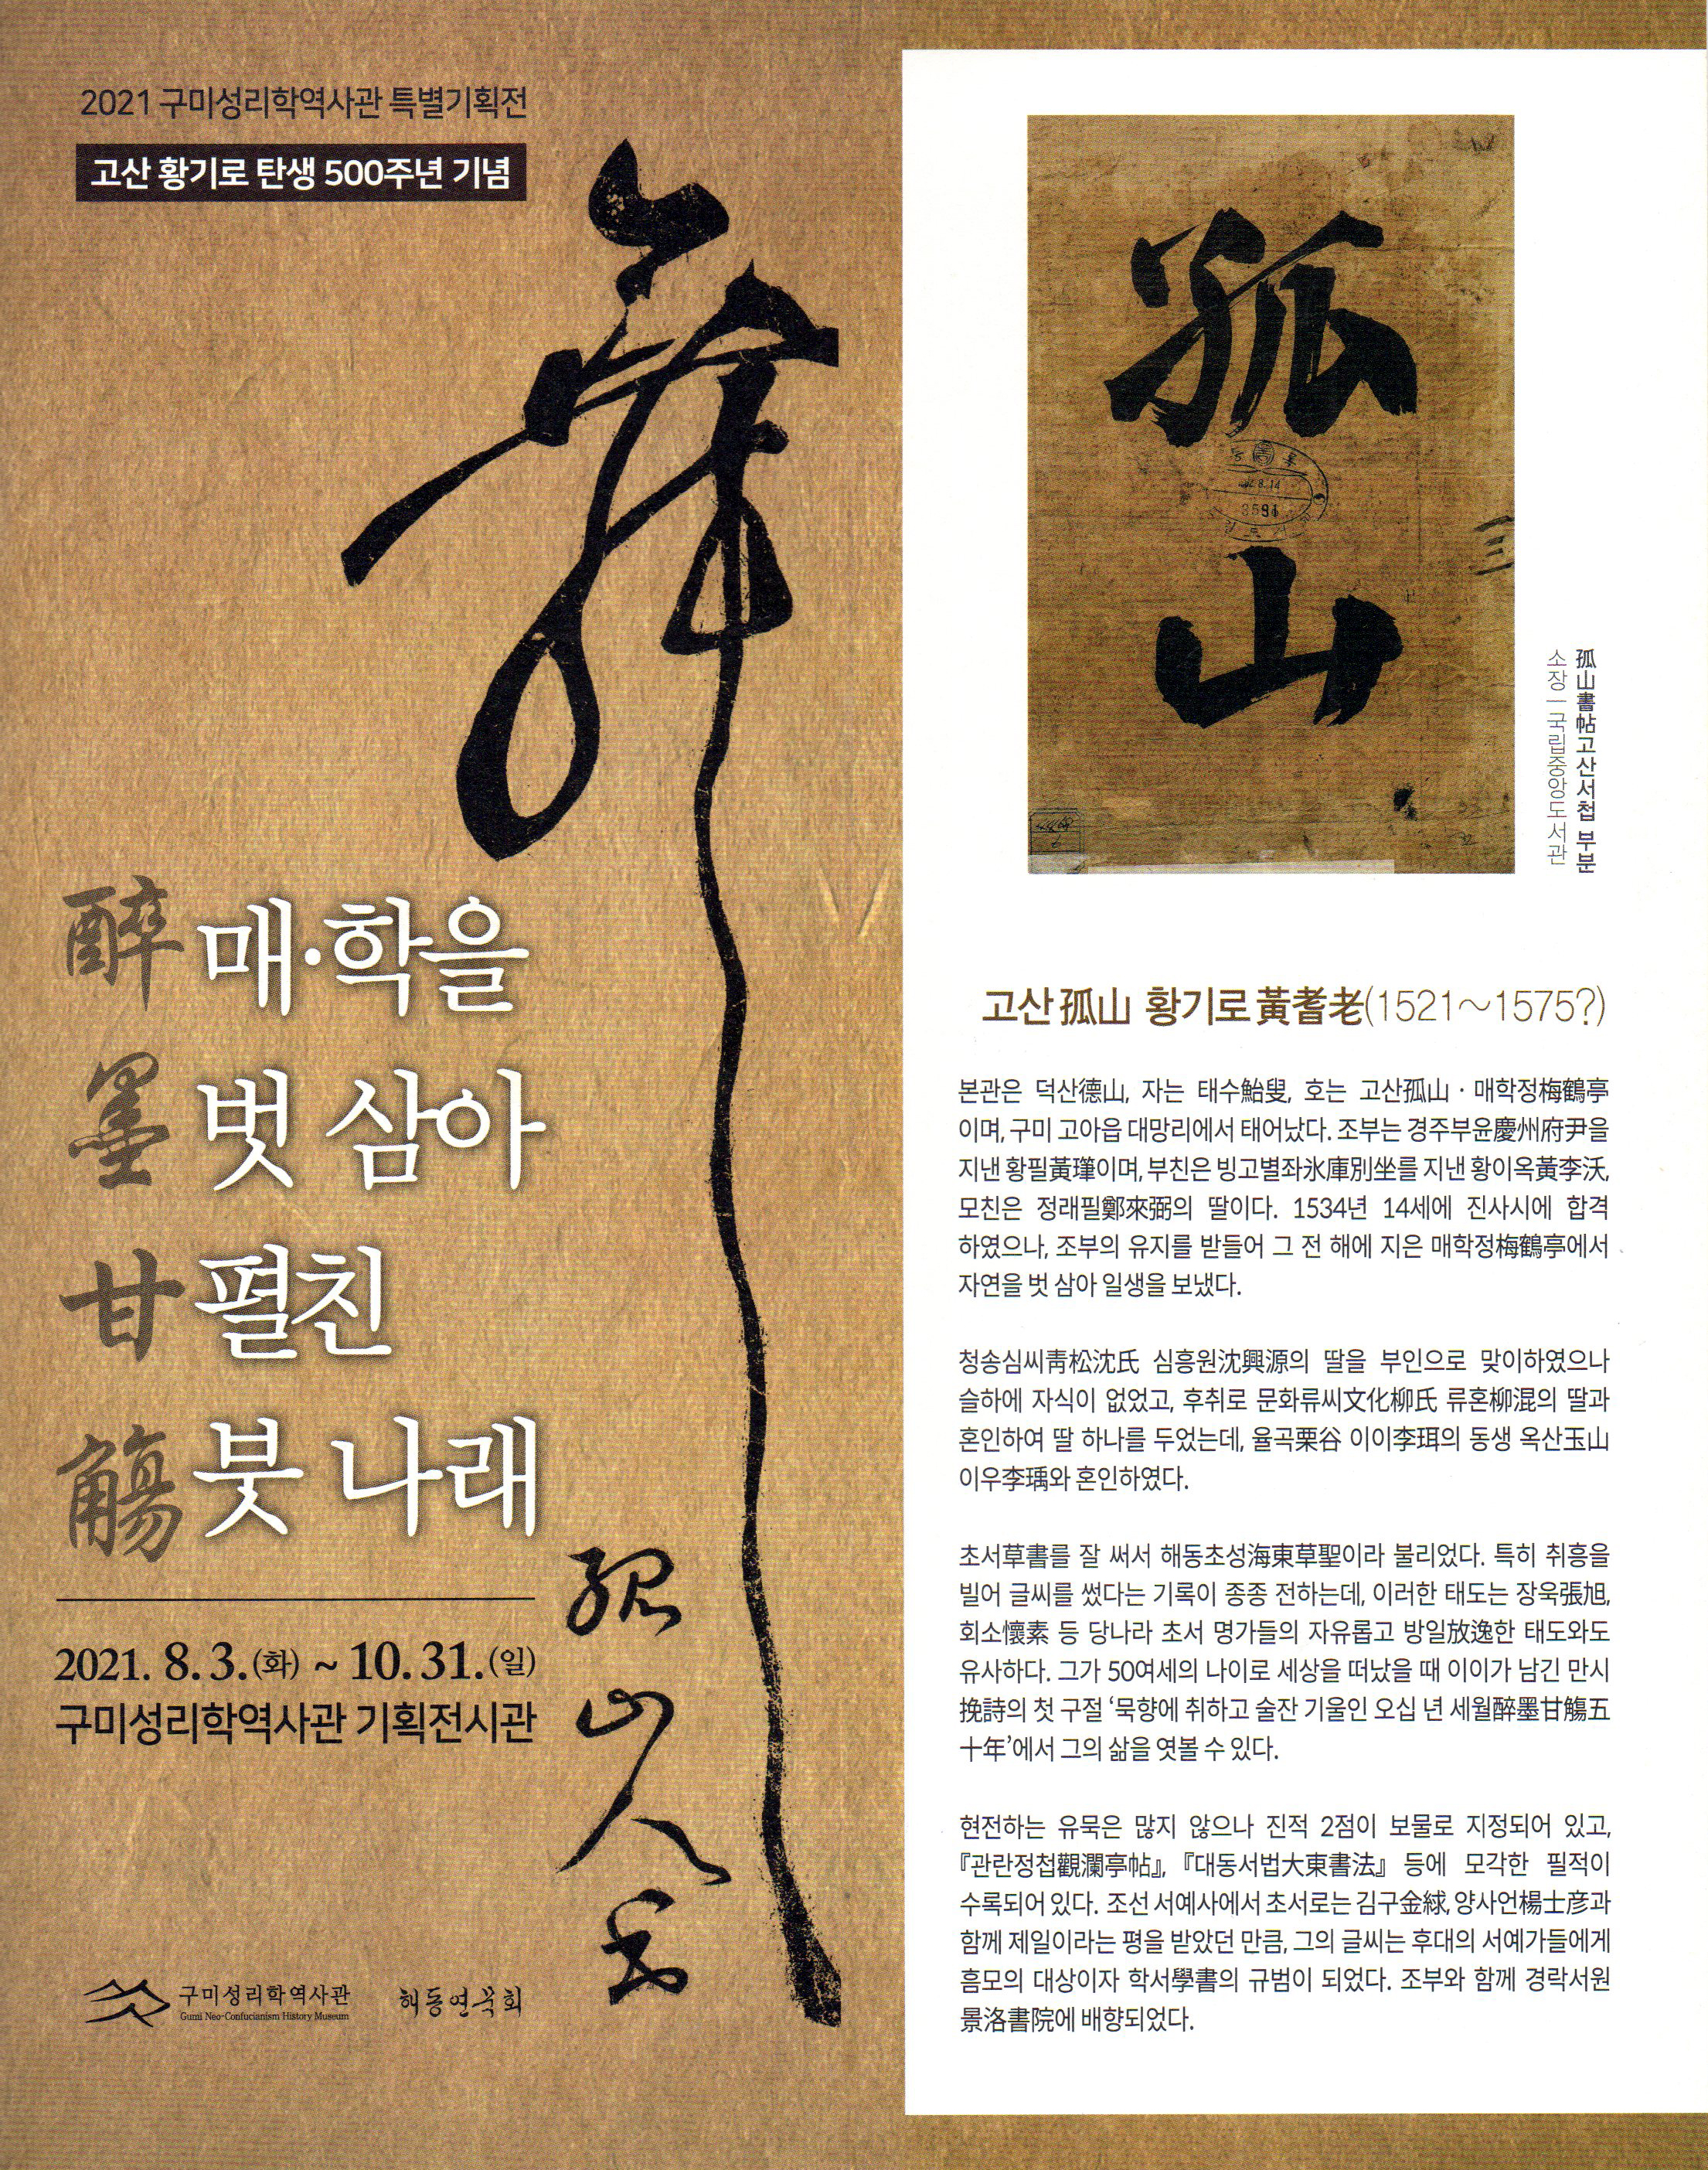 2021 구미성리학역사관 특별기획전
고산 황기로 탄생 500주년 기념
醉墨甘觴
매·학을
벗 삼아
펼친
붓 나래
2021. 8. 3.(화) ~ 10. 31.(일)
구미성리학역사관 기획전시관
孤山人書
구미성리학역사관
Gumi Neo-Confucianism History Museum
해동연묵회
孤山
8.14
8591
孤山書帖고산서첩 부분
소장 | 국립중앙도서관
고산 孤山 황기로 黃耆老(1521~1575?)
본관은 덕산德山, 자는 태수鮐叟, 호는 고산孤山 · 매학정梅鶴亭
이며, 구미 고아읍 대망리에서 태어났다. 조부는 경주부윤慶州府尹을
지낸 황필黃㻶이며, 부친은 빙고별좌氷庫別坐를 지낸 황이옥黃李沃,
모친은 정래필鄭來弼의 딸이다. 1534년 14세에 진사시에 합격
하였으나, 조부의 유지를 받들어 그 전 해에 지은 매학정梅鶴亭에서
자연을 벗 삼아 일생을 보냈다.
청송심씨靑松沈氏 심흥원沈興源의 딸을 부인으로 맞이하였으나
슬하에 자식이 없었고, 후취로 문화류씨文化柳氏 류혼柳混의 딸과
혼인하여 딸 하나를 두었는데, 율곡栗谷 이이李珥의 동생 옥산玉山
이우李瑀와 혼인하였다.
초서草書를 잘 써서 해동초성海東草聖이라 불리었다. 특히 취흥을
빌어 글씨를 썼다는 기록이 종종 전하는데, 이러한 태도는 장욱張旭,
회소懷素 등 당나라 초서 명가들의 자유롭고 방일放逸한 태도와도
유사하다. 그가 50여세의 나이로 세상을 떠났을 때 이이가 남긴 만시
挽詩의 첫 구절 ‘묵향에 취하고 술잔 기울인 오십 년 세월醉墨甘觴五
十年’에서 그의 삶을 엿볼 수 있다.
현전하는 유묵은 많지 않으나 진적 2점이 보물로 지정되어 있고,
『관란정첩觀瀾亭帖』, 『대동서법大東書法』 등에 모각한 필적이
수록되어 있다. 조선 서예사에서 초서로는 김구金絿, 양사언楊士彦과
함께 제일이라는 평을 받았던 만큼, 그의 글씨는 후대의 서예가들에게
흠모의 대상이자 학서學書의 규범이 되었다. 조부와 함께 경락서원
景洛書院에 배향되었다.